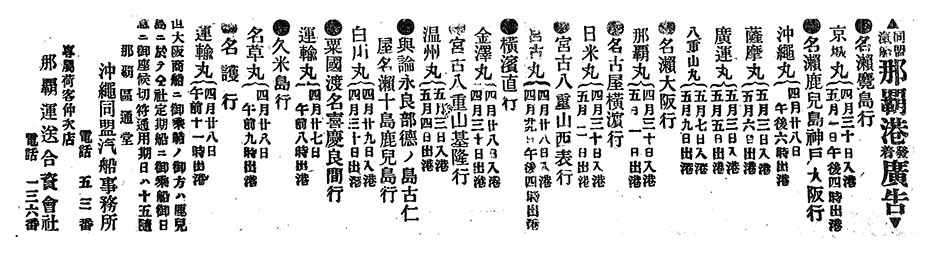 ▲同盟汽船那覇港發着廣告▼
●名瀬鹿児島行
京城丸(四月三十日入港 五月一日午後四時出港
●名瀬鹿兒島神戸大阪行
沖繩丸(四月廿八日 午後六時出港
薩摩丸(五月三日入港 五月六日出港
廣運丸(五月五日入港 五月七日出港
八重山丸(五月七日入港 五月九日出港
●名瀬大阪行
那覇丸(四月三十日入港 五月一日出港
●名古屋横濱行
日米丸(四月三十日入港 五月二日出港
●宮古八重山西表行
宮古丸(四月廿八日入港 四月廿九日午後四時出港
●横濱直行
金澤丸(四月廿八日入港 四月三十日出港
●宮古八重山基隆行
温州丸(五月三日入港 五月四日出港
●與論永良部徳ノ島古仁
屋名瀬十島鹿兒島行
白川丸(四月廿九日入港 四月三十日出港
●粟國渡名喜慶良間行
運輸丸(四月廿七日 午前八時出港
●久米島行
名草丸(四月廿八日 午前九時出港
●名護行
運輸丸(四月廿八日 午前十一時出港
但大阪商船ニ御乘船ノ御方ハ鹿兒
島ニ於テ仝社定期船ニ御乘船御日
隨意ニ御座候切符通用期日ハ十五
那覇區通堂
沖繩同盟汽船事務所
電話 五三番
專屬荷客仲次店
那覇運送合資會社
電話 一三六番